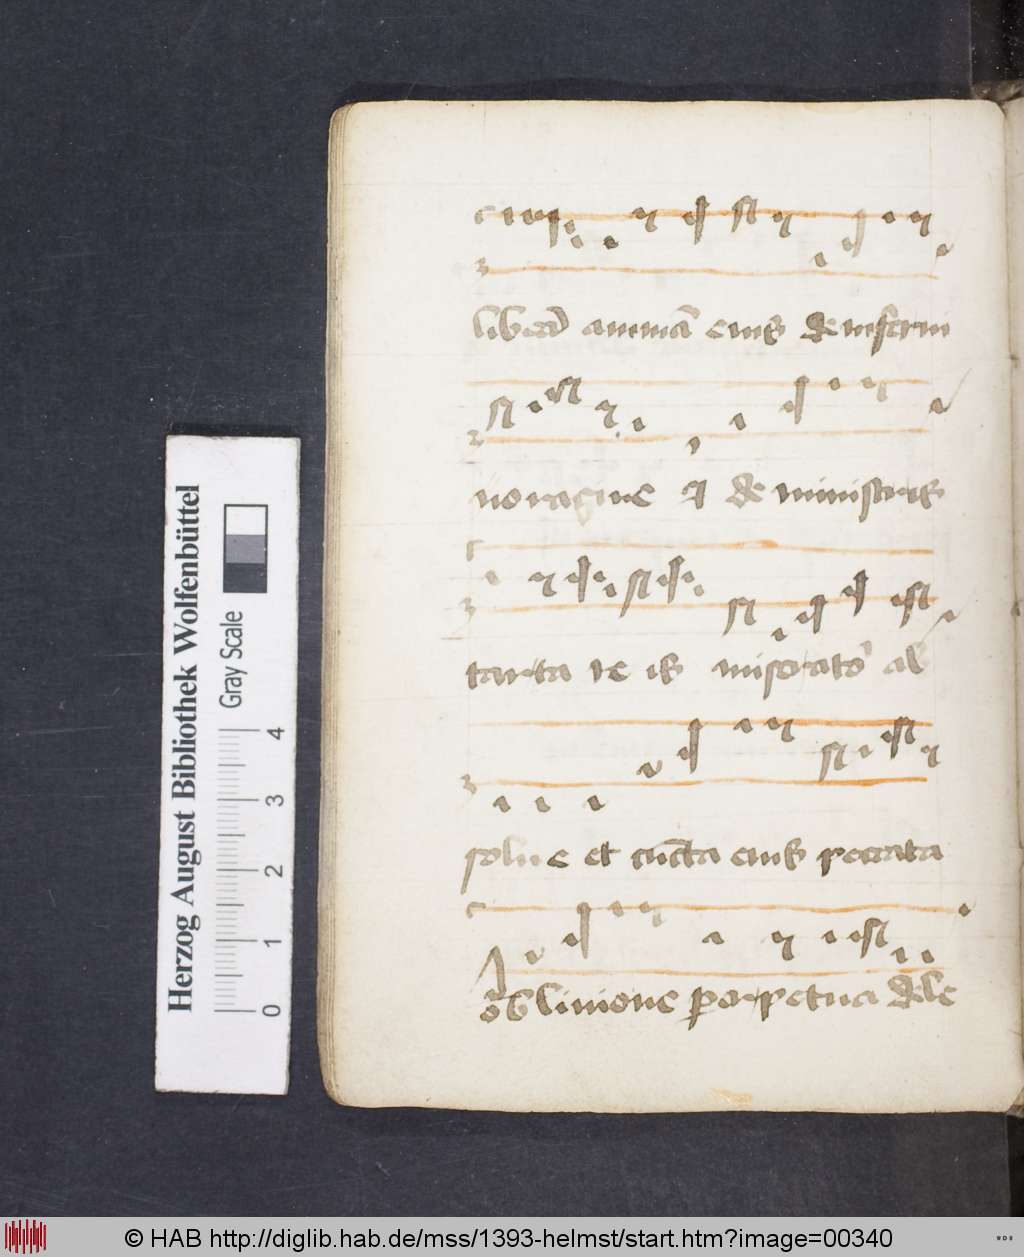 liberã animã eius de inferni
voragine et de ministris
tartareis miserator ab
solue et cuncta eius peccata
obliuione perpetua dele
Herzog August Bibliothek Wolfenbüttel
Gray Scale
0 1 2 3 4
© HAB http://diglib.hab.de/mss/1393-helmst/start.htm?image=00340